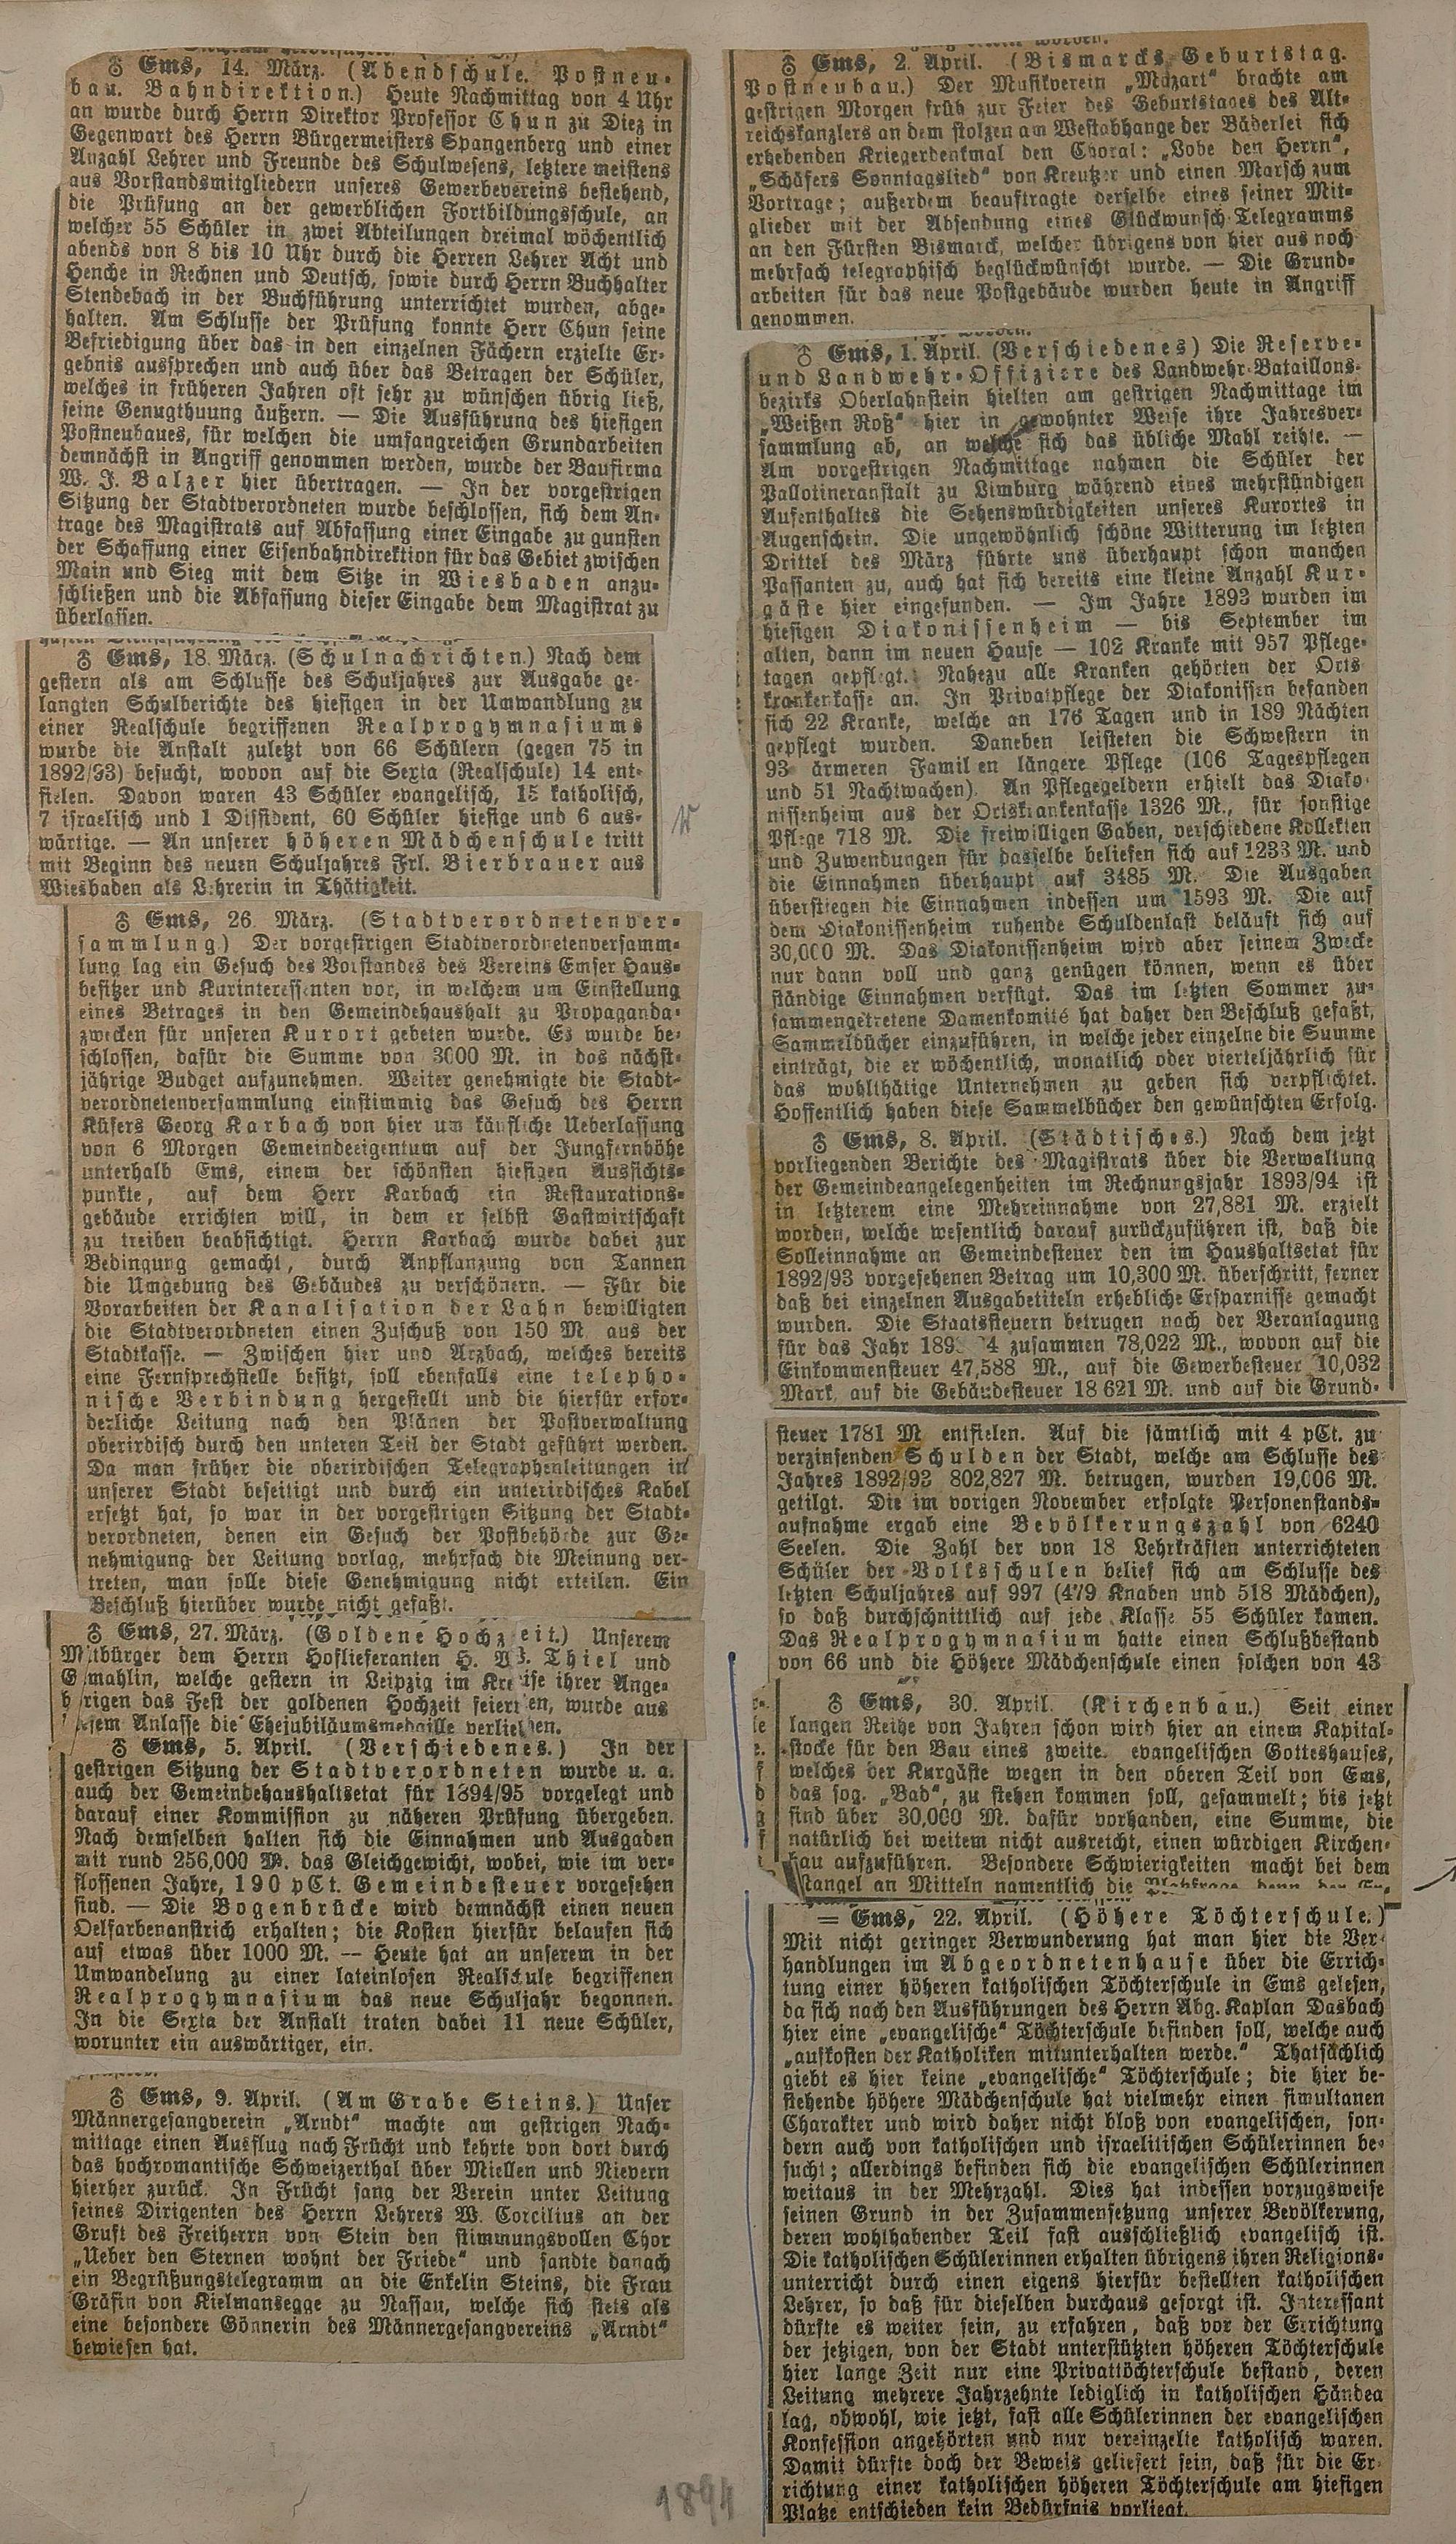 ♁ Ems, 14. März. (Abendschule. Postneu-
bau. Bahndirektion.) Heute Nachmittag von 4 Uhr
an wurde durch Herrn Direktor Professor Chun zu Diez in
Gegenwart des Herrn Bürgermeisters Spangenberg und einer
Anzahl Lehrer und Freunde des Schulwesens, letztere meistens
aus Vorstandsmitgliedern unseres Gewerbevereins bestehend,
die Prüfung an der gewerblichen Fortbildungsschule, an
welcher 55 Schüler in zwei Abteilungen dreimal wöchentlich
abends von 8 bis 10 Uhr durch die Herren Lehrer Acht und
Henche in Rechnen und Deutsch, sowie durch Herrn Buchhalter
Stendebach in der Buchführung unterrichtet wurden, abge-
halten. Am Schlusse der Prüfung konnte Herr Chun seine
Befriedigung über das in den einzelnen Fächern erzielte Er-
gebnis aussprechen und auch über das Betragen der Schüler,
welches in früheren Jahren oft sehr zu wünschen übrig ließ,
seine Genugthuung äußern. — Die Ausführung des hiesigen
Postneubaues, für welchen die umfangreichen Grundarbeiten
demnächst in Angriff genommen werden, wurde der Baufirma
W. J. Balzer hier übertragen. — In der vorgestrigen
Sitzung der Stadtverordneten wurde beschlossen, sich dem An-
trage des Magistrats auf Abfassung einer Eingabe zu gunsten
der Schaffung einer Eisenbahndirektion für das Gebiet zwischen
Main und Sieg mit dem Sitze in Wiesbaden anzu-
schließen und die Abfassung dieser Eingabe dem Magistrat zu
überlassen.
♁ Ems, 18. März. (Schulnachrichten.) Nach dem
gestern als am Schlusse des Schuljahres zur Ausgabe ge-
langten Schulberichte des hiesigen in der Umwandlung zu
einer Realschule begriffenen Realprogymnasiums
wurde die Anstalt zuletzt von 66 Schülern (gegen 75 in
1892/93) besucht, wovon auf die Sexta (Realschule) 14 ent-
fielen. Davon waren 43 Schüler evangelisch, 15 katholisch,
7 israelisch und 1 Dissident, 60 Schüler hiesige und 6 aus-
wärtige. — An unserer höheren Mädchenschule tritt
mit Beginn des neuen Schuljahres Frl. Bierbrauer aus
Wiesbaden als Lehrerin in Thätigkeit.
♁ Ems, 26. März. (Stadtverordnetenver-
sammlung.) Der vorgestrigen Stadtverordnetenversamm-
lung lag ein Gesuch des Vorstandes des Vereins Emser Haus-
besitzer und Kurinteressenten vor, in welchem um Einstellung
eines Betrages in den Gemeindehaushalt zu Propaganda-
zwecken für unseren Kurort gebeten wurde. Es wurde be-
schlossen, dafür die Summe von 3000 M. in das nächst-
jährige Budget aufzunehmen. Weiter genehmigte die Stadt-
verordnetenversammlung einstimmig das Gesuch des Herrn
Küfers Georg Karbach von hier um käufliche Ueberlassung
von 6 Morgen Gemeindeeigentum auf der Jungfernhöhe
unterhalb Ems, einem der schönsten hiesigen Aussichts-
punkte, auf dem Herr Karbach ein Restaurations-
gebäude errichten will, in dem er selbst Gastwirtschaft
zu treiben beabsichtigt. Herrn Karbach wurde dabei zur
Bedingung gemacht, durch Anpflanzung von Tannen
die Umgebung des Gebäudes zu verschönern. — Für die
Vorarbeiten der Kanalisation der Lahn bewilligten
die Stadtverordneten einen Zuschuß von 150 M. aus der
Stadtkasse. — Zwischen hier und Arzbach, welches bereits
eine Fernsprechstelle besitzt, soll ebenfalls eine telepho-
nische Verbindung hergestellt und die hierfür erfor-
derliche Leitung nach den Plänen der Postverwaltung
oberirdisch durch den unteren Teil der Stadt geführt werden.
Da man früher die oberirdischen Telegraphenleitungen in
unserer Stadt beseitigt und durch ein unterirdisches Kabel
ersetzt hat, so war in der vorgestrigen Sitzung der Stadt-
verordneten, denen ein Gesuch der Postbehörde zur Ge-
nehmigung der Leitung vorlag, mehrfach die Meinung ver-
treten, man solle diese Genehmigung nicht erteilen. Ein
Beschluß hierüber wurde nicht gefaßt.
♁ Ems, 27. März. (Goldene Hochzeit.) Unserem
Mitbürger dem Herrn Hoflieferanten H. W. Thiel und
Gemahlin, welche gestern in Leipzig im Kreise ihrer Ange-
hörigen das Fest der goldenen Hochzeit feierten, wurde aus
diesem Anlasse die Ehejubiläumsmedaille verliehen.
♁ Ems, 5. April. (Verschiedenes.) In der
gestrigen Sitzung der Stadtverordneten wurde u. a.
auch der Gemeindehaushaltsetat für 1894/95 vorgelegt und
darauf einer Kommission zu näheren Prüfung übergeben.
Nach demselben halten sich die Einnahmen und Ausgaben
mit rund 256,000 M. das Gleichgewicht, wobei, wie im ver-
flossenen Jahre, 190 pCt. Gemeindesteuer vorgesehen
sind. — Die Bogenbrücke wird demnächst einen neuen
Oelfarbenanstrich erhalten; die Kosten hierfür belaufen sich
auf etwas über 1000 M. — Heute hat an unserem in der
Umwandelung zu einer lateinlosen Realschule begriffenen
Realprogymnasium das neue Schuljahr begonnen.
In die Sexta der Anstalt traten dabei 11 neue Schüler,
worunter ein auswärtiger, ein.
♁ Ems, 9. April. (Am Grabe Steins.) Unser
Männergesangverein „Arndt“ machte am gestrigen Nach-
mittage einen Ausflug nach Frücht und kehrte von dort durch
das hochromantische Schweizerthal über Miellen und Nievern
hierher zurück. In Frücht sang der Verein unter Leitung
seines Dirigenten des Herrn Lehrers W. Corcilius an der
Gruft des Freiherrn von Stein den stimmungsvollen Chor
„Ueber den Sternen wohnt der Friede“ und sandte danach
ein Begrüßungstelegramm an die Enkelin Steins, die Frau
Gräfin von Kielmansegge zu Nassau, welche sich stets als
eine besondere Gönnerin des Männergesangvereins „Arndt“
bewiesen hat.
♁ Ems, 2. April. (Bismarcks Geburtstag.
Postneubau.) Der Musikverein „Mozart“ brachte am
gestrigen Morgen früh zur Feier des Geburtstages des Alt-
reichskanzlers an dem stolzen am Westabhange der Bäderlei sich
erhebenden Kriegerdenkmal den Choral: „Lobe den Herrn“,
„Schäfers Sonntagslied“ von Kreutzer und einen Marsch zum
Vortrage; außerdem beauftragte derselbe eines seiner Mit-
glieder mit der Absendung eines Glückwunsch-Telegramms
an den Fürsten Bismarck, welcher übrigens von hier aus noch
mehrfach telegraphisch beglückwünscht wurde. — Die Grund-
arbeiten für das neue Postgebäude wurden heute in Angriff
genommen.
♁ Ems, 1. April. (Verschiedenes) Die Reserve-
und Landwehr-Offiziere des Landwehr-Bataillons-
bezirks Oberlahnstein hielten am gestrigen Nachmittage im
„Weißen Roß“ hier in gewohnter Weise ihre Jahresver-
sammlung ab, an welche sich das übliche Mahl reihte. —
Am vorgestrigen Nachmittage nahmen die Schüler der
Pallotineranstalt zu Limburg während eines mehrstündigen
Aufenthaltes die Sehenswürdigkeiten unseres Kurortes in
Augenschein. Die ungewöhnlich schöne Witterung im letzten
Drittel des März führte uns überhaupt schon manchen
Passanten zu, auch hat sich bereits eine kleine Anzahl Kur-
gäste hier eingefunden. — Im Jahre 1893 wurden im
hiesigen Diakonissenheim — bis September im
alten, dann im neuen Hause — 102 Kranke mit 957 Pflege-
tagen gepflegt. Nahezu alle Kranken gehörten der Orts
krankenkasse an. In Privatpflege der Diakonissen befanden
sich 22 Kranke, welche an 176 Tagen und in 189 Nächten
gepflegt wurden. Daneben leisteten die Schwestern in
93 ärmeren Familien längere Pflege (106 Tagespflegen
und 51 Nachtwachen). An Pflegegeldern erhielt das Diako-
nissenheim aus der Ortskrankenkasse 1326 M., für sonstige
Pflege 718 M. Die freiwilligen Gaben, verschiedene Kollekten
und Zuwendungen für dasselbe beliefen sich auf 1233 M. und
die Einnahmen überhaupt auf 3485 M. Die Ausgaben
überstiegen die Einnahmen indessen um 1593 M. Die auf
dem Diakonissenheim ruhende Schuldenlast beläuft sich auf
30,000 M. Das Diakonissenheim wird aber seinem Zwecke
nur dann voll und ganz genügen können, wenn es über
ständige Einnahmen verfügt. Das im letzten Sommer zu-
sammengetretene Damenkomité hat daher den Beschluß gefaßt,
Sammelbücher einzuführen, in welche jeder einzelne die Summe
einträgt, die er wöchentlich, monatlich oder vierteljährlich für
das wohlthätige Unternehmen zu geben sich verpflichtet.
Hoffentlich haben diese Sammelbücher den gewünschten Erfolg.
♁ Ems, 8. April. (Städtisches.) Nach dem jetzt
vorliegenden Berichte des Magistrats über die Verwaltung
der Gemeindeangelegenheiten im Rechnungsjahr 1893/94 ist
in letzterem eine Mehreinnahme von 27,881 M. erzielt
worden, welche wesentlich darauf zurückzuführen ist, daß die
Solleinnahme an Gemeindesteuer den im Haushaltsetat für
1892/93 vorgesehenen Betrag um 10,300 M. überschritt, ferner
daß bei einzelnen Ausgabetiteln erhebliche Ersparnisse gemacht
wurden. Die Staatssteuern betrugen nach der Veranlagung
für das Jahr 189 4 zusammen 78,022 M., wovon auf die
Einkommensteuer 47,588 M., auf die Gewerbesteuer 10,032
Mark, auf die Gebäudesteuer 18 621 M. und auf die Grund-
steuer 1781 M entfielen. Auf die sämtlich mit 4 pCt. zu
verzinsenden Schulden der Stadt, welche am Schlusse des
Jahres 1892/93 802,827 M. betrugen, wurden 19,006 M.
getilgt. Die im vorigen November erfolgte Personenstands-
aufnahme ergab eine Bevölkerungszahl von 6240
Seelen. Die Zahl der von 18 Lehrkräften unterrichteten
Schüler der Volksschulen belief sich am Schlusse des
letzten Schuljahres auf 997 (479 Knaben und 518 Mädchen),
so daß durchschnittlich auf jede Klasse 55 Schüler kamen.
Das Realprogymnasium hatte einen Schlußbestand
von 66 und die Höhere Mädchenschule einen solchen von 43
♁ Ems, 30. April. (Kirchenbau.) Seit einer
langen Reihe von Jahren schon wird hier an einem Kapital-
stocke für den Bau eines zweite. evangelischen Gotteshauses,
welches der Kurgäste wegen in den oberen Teil von Ems,
das sog. „Bad“, zu stehen kommen soll, gesammelt; bis jetzt
sind über 30,000 M. dafür vorhanden, eine Summe, die
natürlich bei weitem nicht ausreicht, einen würdigen Kirchen-
bau aufzuführen. Besondere Schwierigkeiten macht bei dem
Mangel an Mitteln namentlich die Platzfrage, denn der
= Ems, 22. April. (Höhere Töchterschule.)
Mit nicht geringer Verwunderung hat man hier die Ver-
handlungen im Abgeordnetenhause über die Errich-
tung einer höheren katholischen Töchterschule in Ems gelesen,
da sich nach den Ausführungen des Herrn Abg. Kaplan Dasbach
hier eine „evangelische“ Töchterschule befinden soll, welche auch
„aufkosten der Katholiken mitunterhalten werde.“ Thatsächlich
giebt es hier keine „evangelische“ Töchterschule; die hier be-
stehende höhere Mädchenschule hat vielmehr einen simultanen
Charakter und wird daher nicht bloß von evangelischen, son-
dern auch von katholischen und israelitischen Schülerinnen be-
sucht; allerdings befinden sich die evangelischen Schülerinnen
weitaus in der Mehrzahl. Dies hat indessen vorzugsweise
seinen Grund in der Zusammensetzung unserer Bevölkerung,
deren wohlhabender Teil fast ausschließlich evangelisch ist.
Die katholischen Schülerinnen erhalten übrigens ihren Religions-
unterricht durch einen eigens hierfür bestellten katholischen
Lehrer, so daß für dieselben durchaus gesorgt ist. Interessant
dürfte es weiter sein, zu erfahren, daß vor der Errichtung
der jetzigen, von der Stadt unterstützten höheren Töchterschule
hier lange Zeit nur eine Privattöchterschule bestand, deren
Leitung mehrere Jahrzehnte lediglich in katholischen Händen
lag, obwohl, wie jetzt, fast alle Schülerinnen der evangelischen
Konfession angehörten und nur vereinzelte katholisch waren.
Damit dürfte doch der Beweis geliefert sein, daß für die Er-
richtung einer katholischen höheren Töchterschule am hiesigen
Platze entschieden kein Bedürfnis vorliegt.
1894